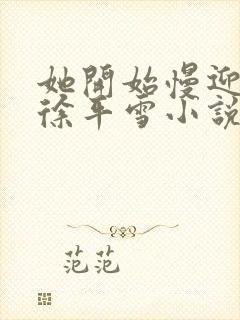 她開始慢迎
徐平雪小說
范范